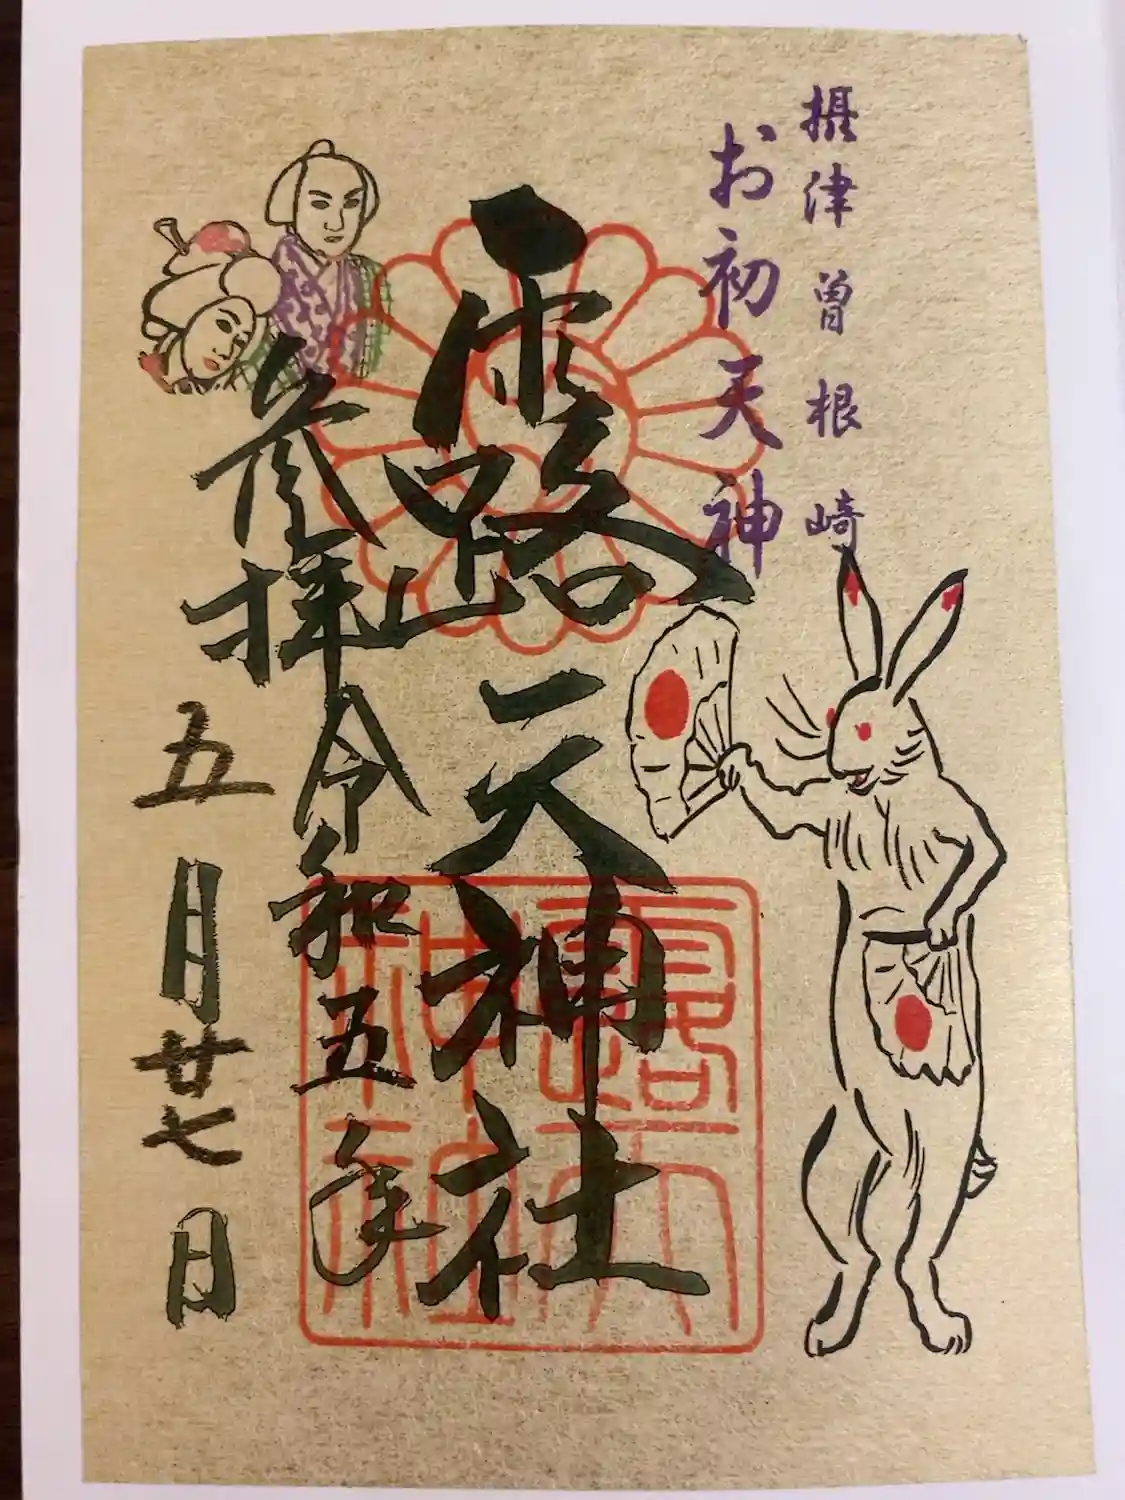 摂津曽根崎
お初天神
露天神社
参拝令和五年
五月廿七日
露天
神社